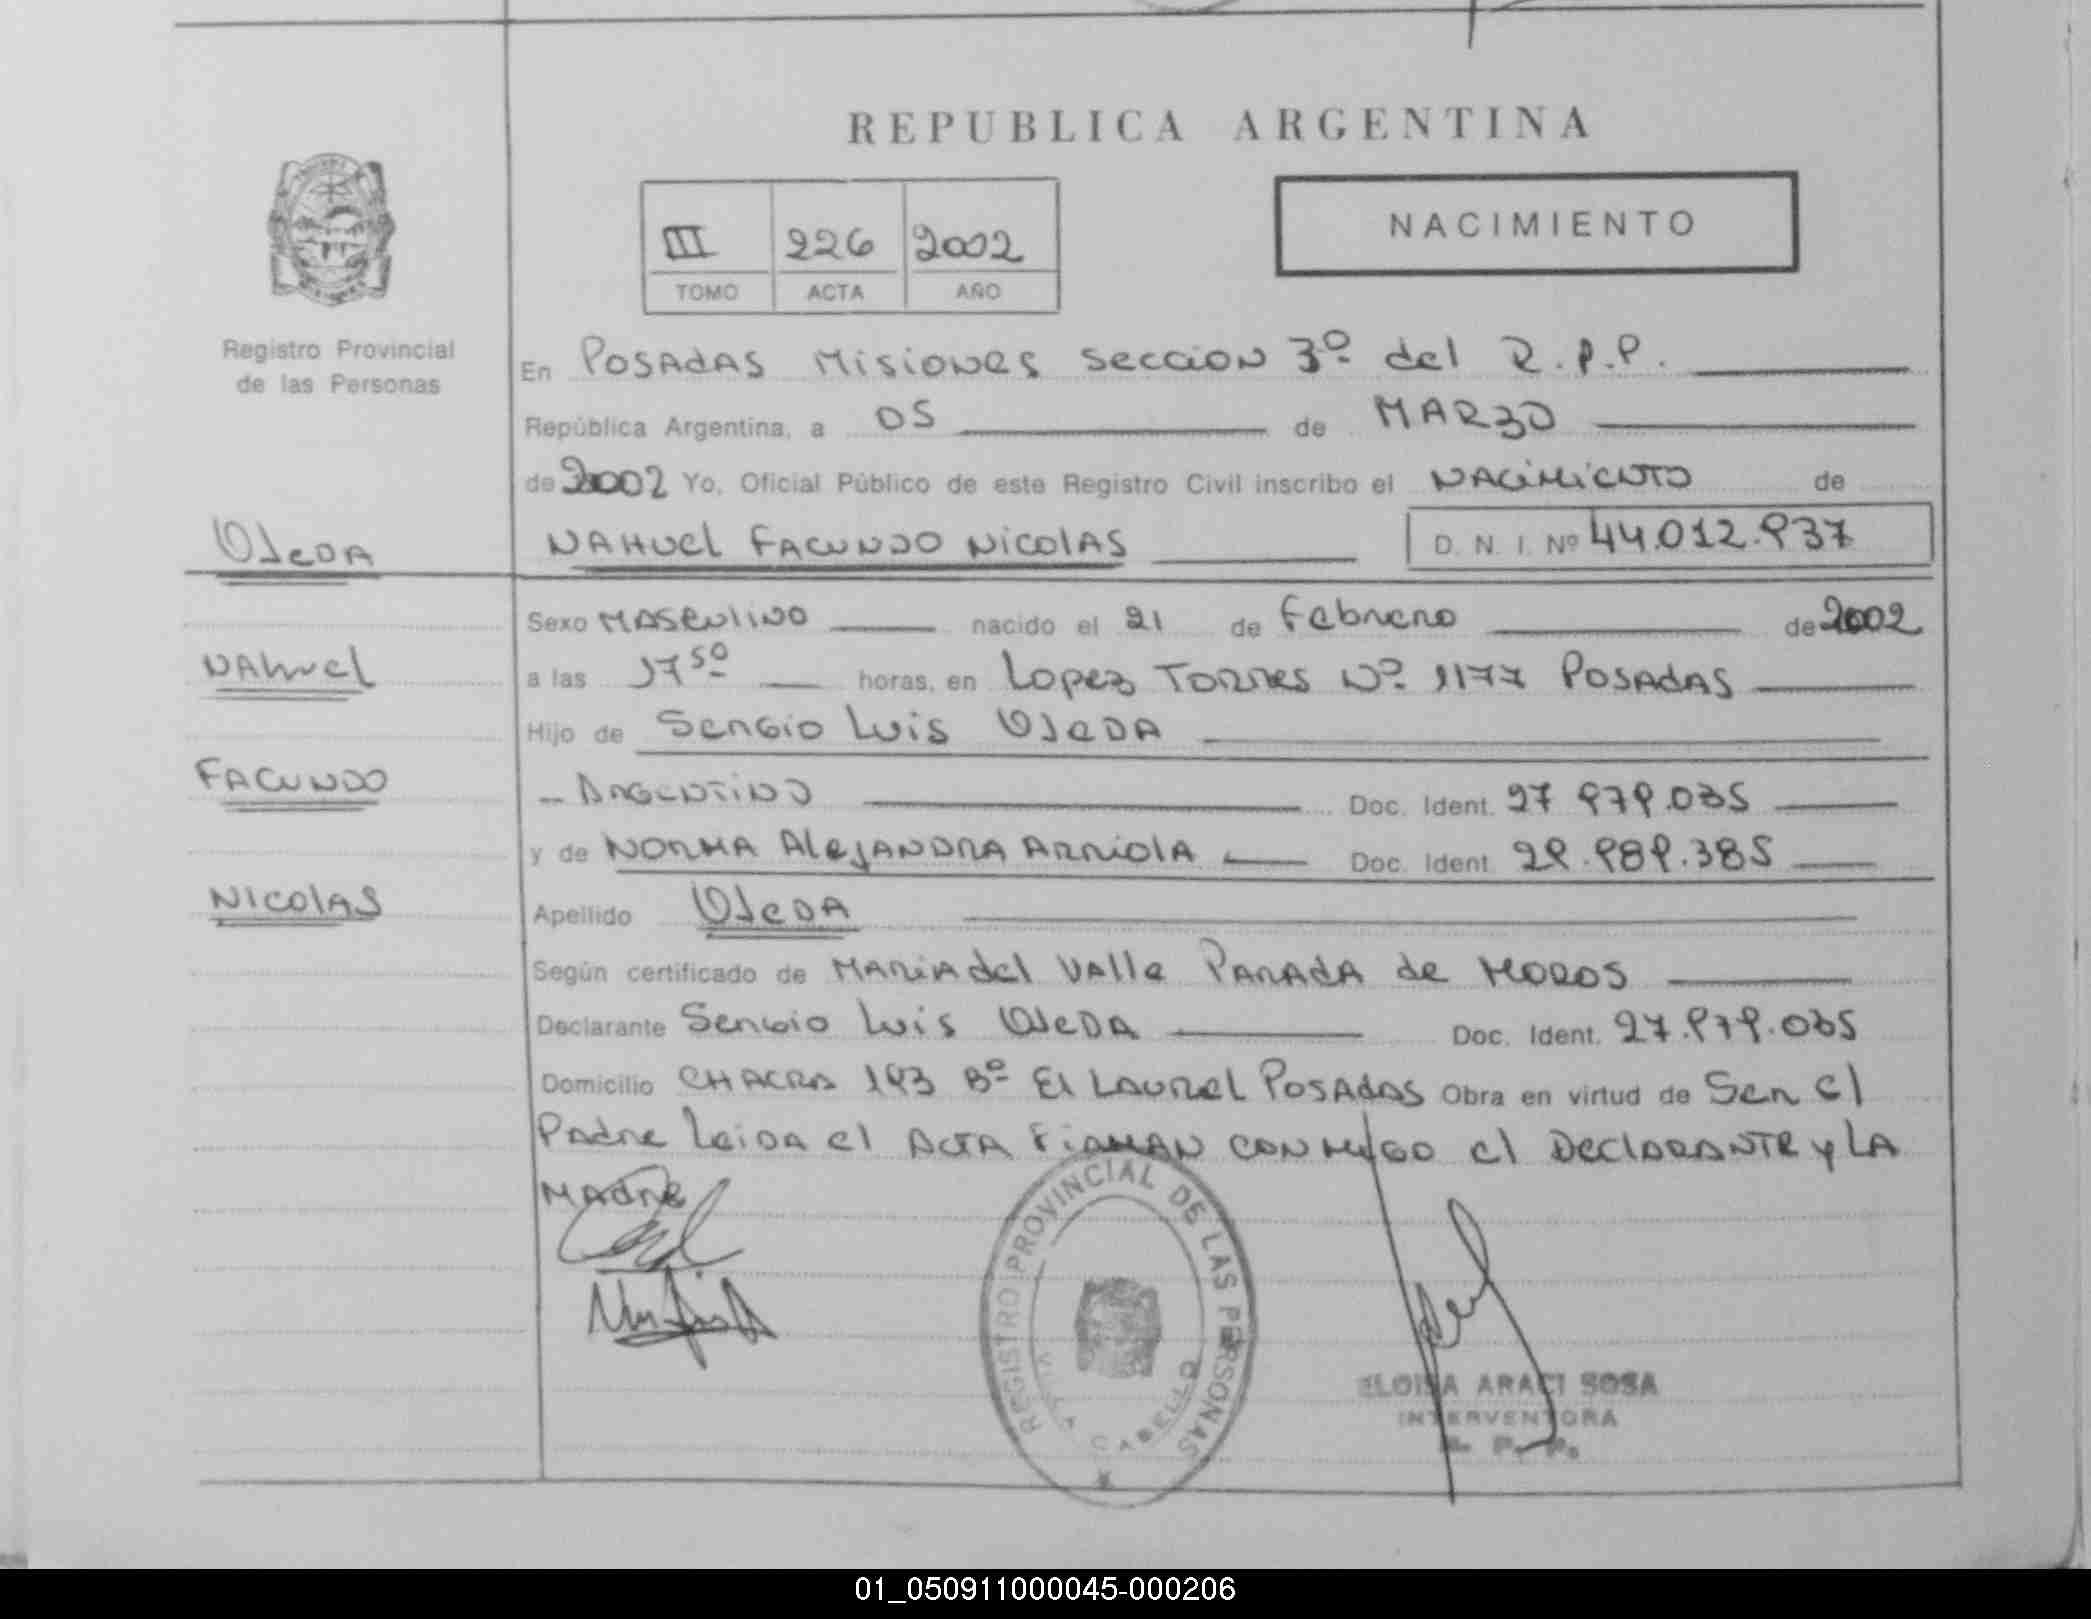 REPUBLICA ARGENTINA
III 226 2002
TOMO ACTA AÑO
NACIMIENTO
Registro Provincial
de las Personas
En POSADAS MISIONES SECCION 3º del R.P.P.
República Argentina, a 05 de MARZO
de 2002 Yo, Oficial Público de este Registro Civil inscribo el NACIMIENTO de
OJEDA
NAHUEL FACUNDO NICOLAS D. N. I. Nº 44.012.937
Sexo MASCULINO nacido el 21 de Febrero de 2002
NAHUEL
a las 17 50 horas, en Lopez Torres Nº 1177 POSADAS
Hijo de Sergio Luis OJEDA
FACUNDO
ARGENTINO Doc. Ident. 27 979.035
y de NORMA AleJANDRA ARRIOLA Doc. Ident. 29.989.385
NICOLAS
Apellido OJEDA
Según certificado de MARIA del VALLE PARADA de MOROS
Declarante Sergio Luis OJEDA Doc. Ident. 27.979.035
Domicilio CHACRA 193 Bº El LAUREL POSADAS Obra en virtud de Ser el
Padre Leida el ACTA FIRMAN CONMIGO el DECLARANTE y LA
MADRE
REGISTRO PROVINCIAL DE LAS PERSONAS
VILLA CABELLO
ELOISA ARACI SOSA
INTERVENTORA
R. P. P.
01_050911000045-000206